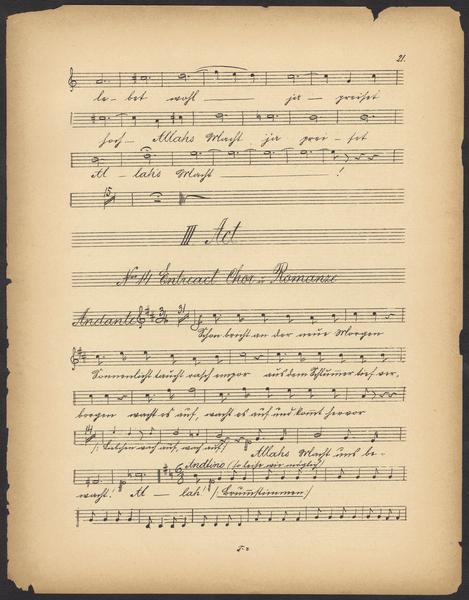 21.
le- bet wohl ja - preiset
hoch - Allahs Macht ja prei- set
Al- lahs Macht !
15
III Act
No 14 Entreact Chor u. Romanze
Andante 3 31
Schon bricht an der neue Morgen
Sonnenlicht taucht rasch empor aus dem Schlummer tief ver,
borgen wacht es auf, wacht es auf und kommt hervor
14
auf, auf Allahs Macht uns be-
Andtino (so leise wie möglich)
wacht! Al - lah! (Brummstimmen)